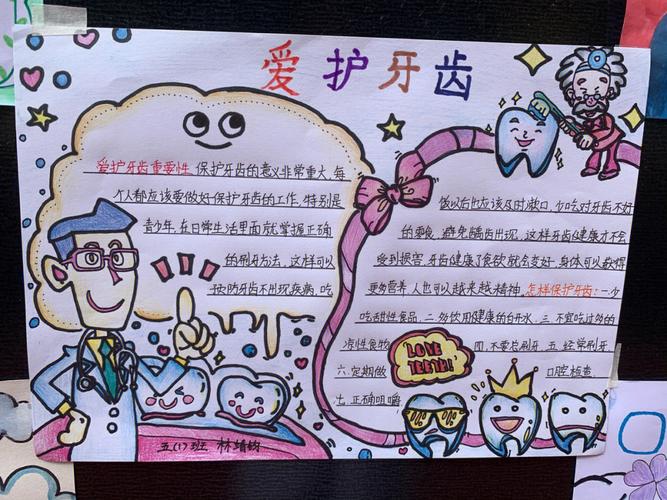 爱护牙齿
爱护牙齿重要性 保护牙齿的意义非常重大,每
个人都应该要做好保护牙齿的工作,特别是
青少年,在日常生活里面就掌握正确
的刷牙方法,这样可以
预防牙齿不出现疾病,吃
饭以后也应该及时漱口,少吃对牙齿不好
的零食,避免龋齿出现,这样牙齿健康才不会
受到损害,牙齿健康了食欲就会变好,身体可以获得
更多营养,人也可以越来越精神,怎样保护牙齿:一.少
吃甜性食品,二.多饮用健康的白开水,三.不宜吃过多的
凉性食物 四.不要总刷牙 五.经常刷牙
六.定期做 口腔检查
七.正确咀嚼
LOVE
TEETH!
五(1)班 林靖钧